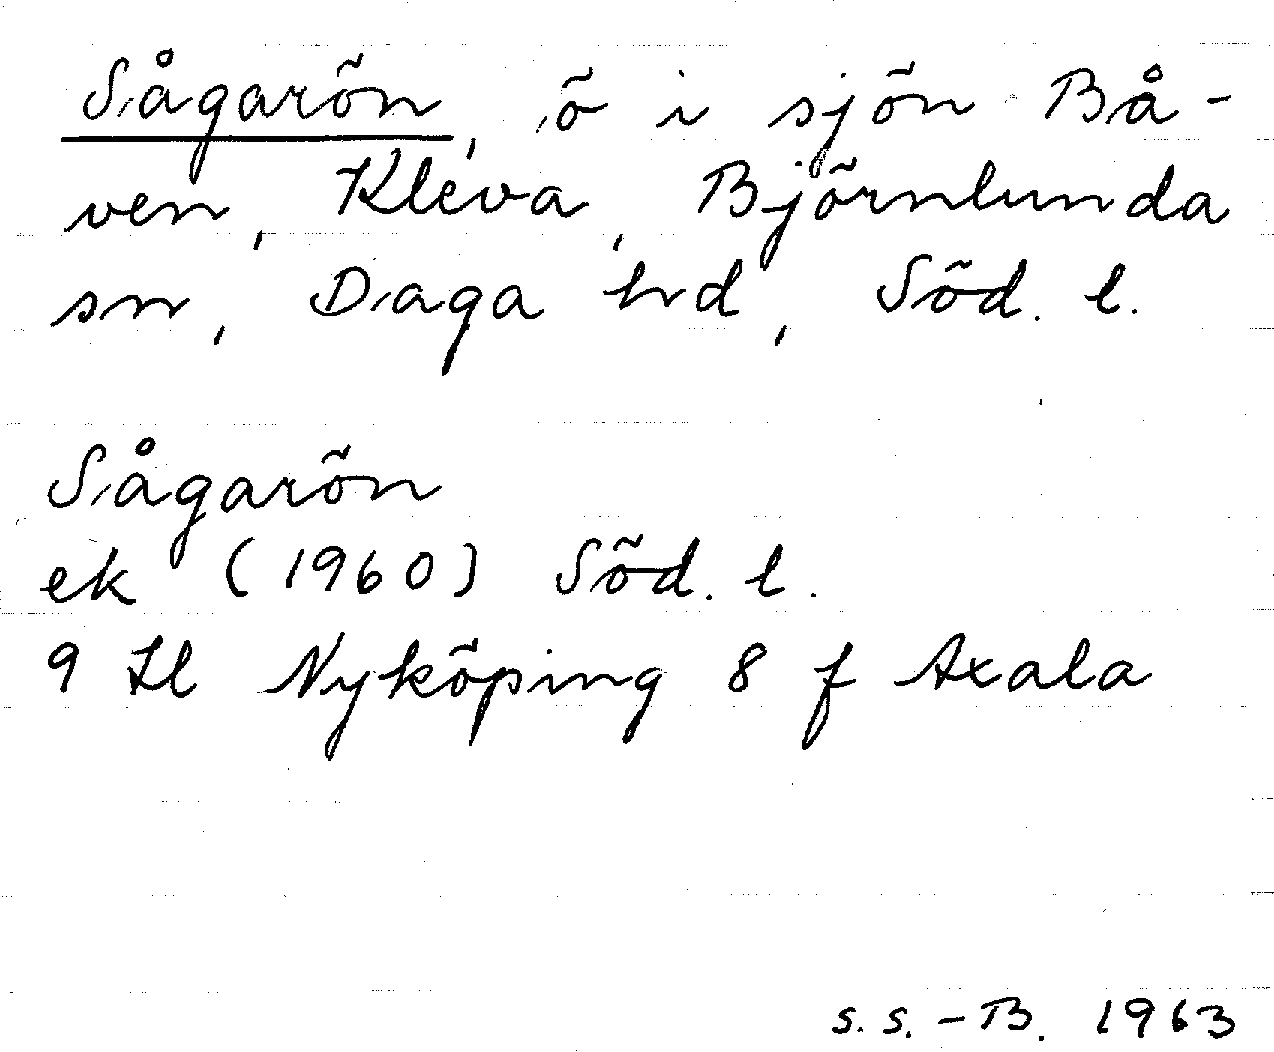 Sågarön, ö i sjön Bå-
ven, Kleva, Björnlunda
sn, Daga hd, Söd. l.
Sågarön
ek (1960) Söd. l.
9 H Nyköping 8 f Axala
S.S.-B. 1963